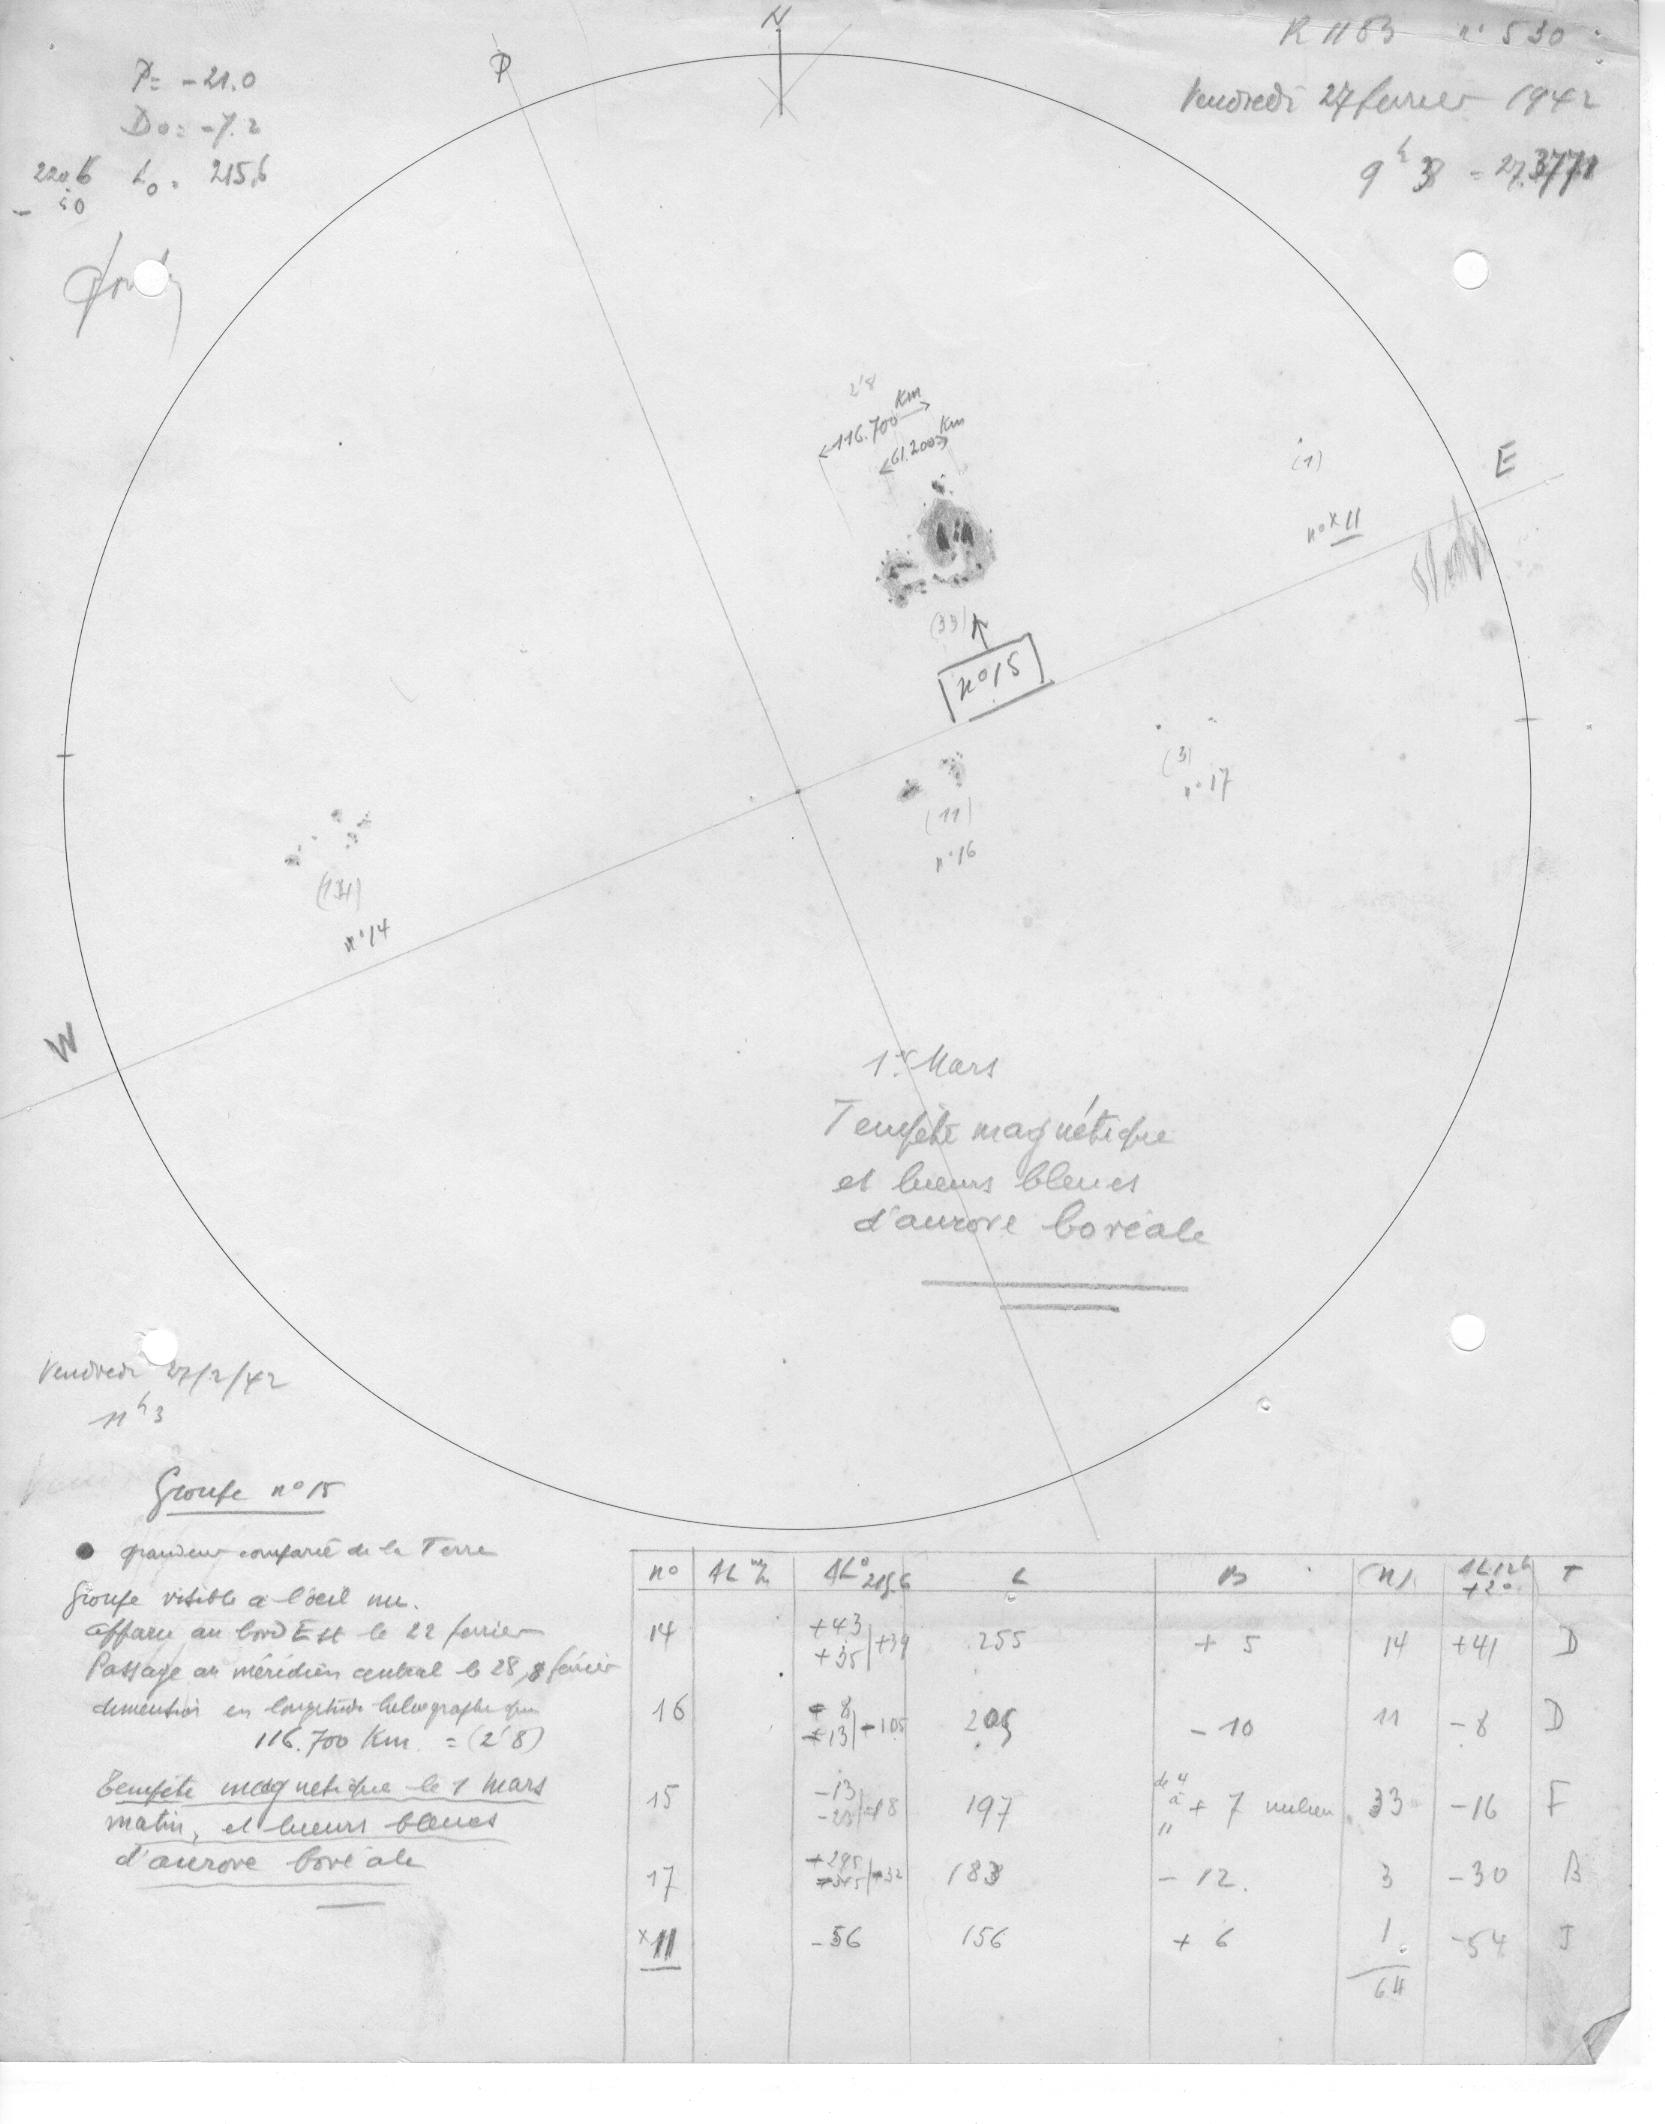 N
P
R 1183 n° 530
P = -21.0
Vendredi 27 fevrier 1942
D o = -7.2
9 h 3 = 27.3771
L o = 215,6
2'8
116.700 Km
61.200 Km
(1)
E
n° x 11
(33)
n° 15
(3)
n° 17
(11)
n° 16
n° 14
W
1er Mars
Tempête magnétique
et lueurs bleues
d'aurore boréale
Vendredi 27/2/42
11 h 3
Groupe n° 15
grandeur comparée de la Terre
Groupe visible à l'oeil nu.
apparu au bord Est le 22 fevrier
Passage au méridien central le 28, fevrier
dimension en longitude heliographique
116.700 Km. = (2'8)
Tempête magnetique le 1 Mars
matin, et lueurs bleues
d'aurore boréale
n° L B N T
14 +43 +35 +39 255 + 5 14 +41 D
16 8 13 - 105 205 - 10 11 - 8 D
15 -13 -23 197 de 4 à 11 + 7 milieu 33 -16 F
17 183 - 12. 3 -30 B
x 11 -56 156 + 6 1 -54 J
64